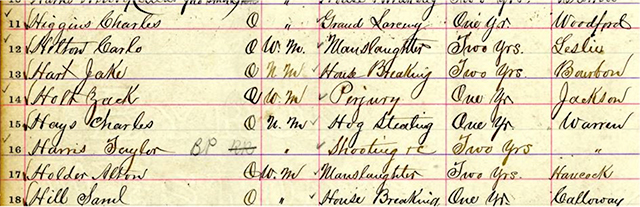 11 Higgins Charles O " Grand Larceny One Yr Woodford
12 Hetton Carlo O W. M. Manslaughter Two Yrs. Leslie
13 Hart Jake O N M ✓ House Breaking Two Yrs. Bourbon
14 Holt Zack O W. M ✓ Perjury One Yr Jackson
15 Hays Charles O N. M ✓ Hog Stealing One Yr Warren
16 Harris Taylor BP O " ✓ Shooting &c Two Yrs "
17 Holder Alton O W. M ✓ Manslaughter Two Yrs. Hancock
18 Hill Saml O " ✓ House Breaking One Yr. Calloway